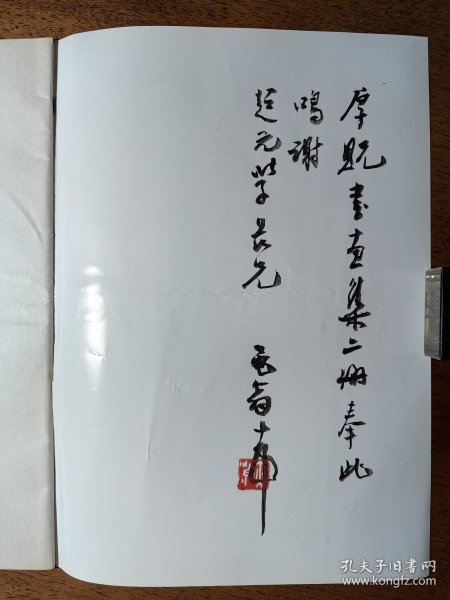 厚贶书画集二册奉此
鸣谢
超元学长兄
孔夫子旧书网
www.kongfz.com